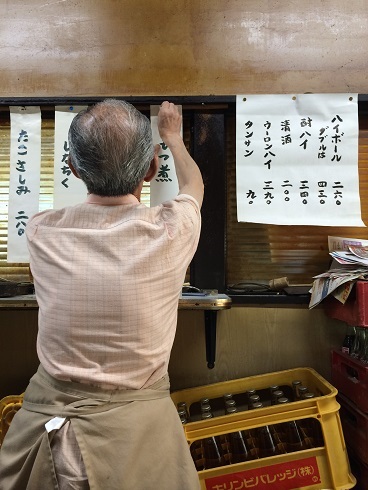 ハイボール 二六〇
ダブルは 四三〇
酎ハイ 三四〇
清酒 二〇〇
ウーロンハイ 三九〇
タンサン 九〇
もつ煮
しなちく
たこさしみ 二八〇
キリンビバレッジ(株)